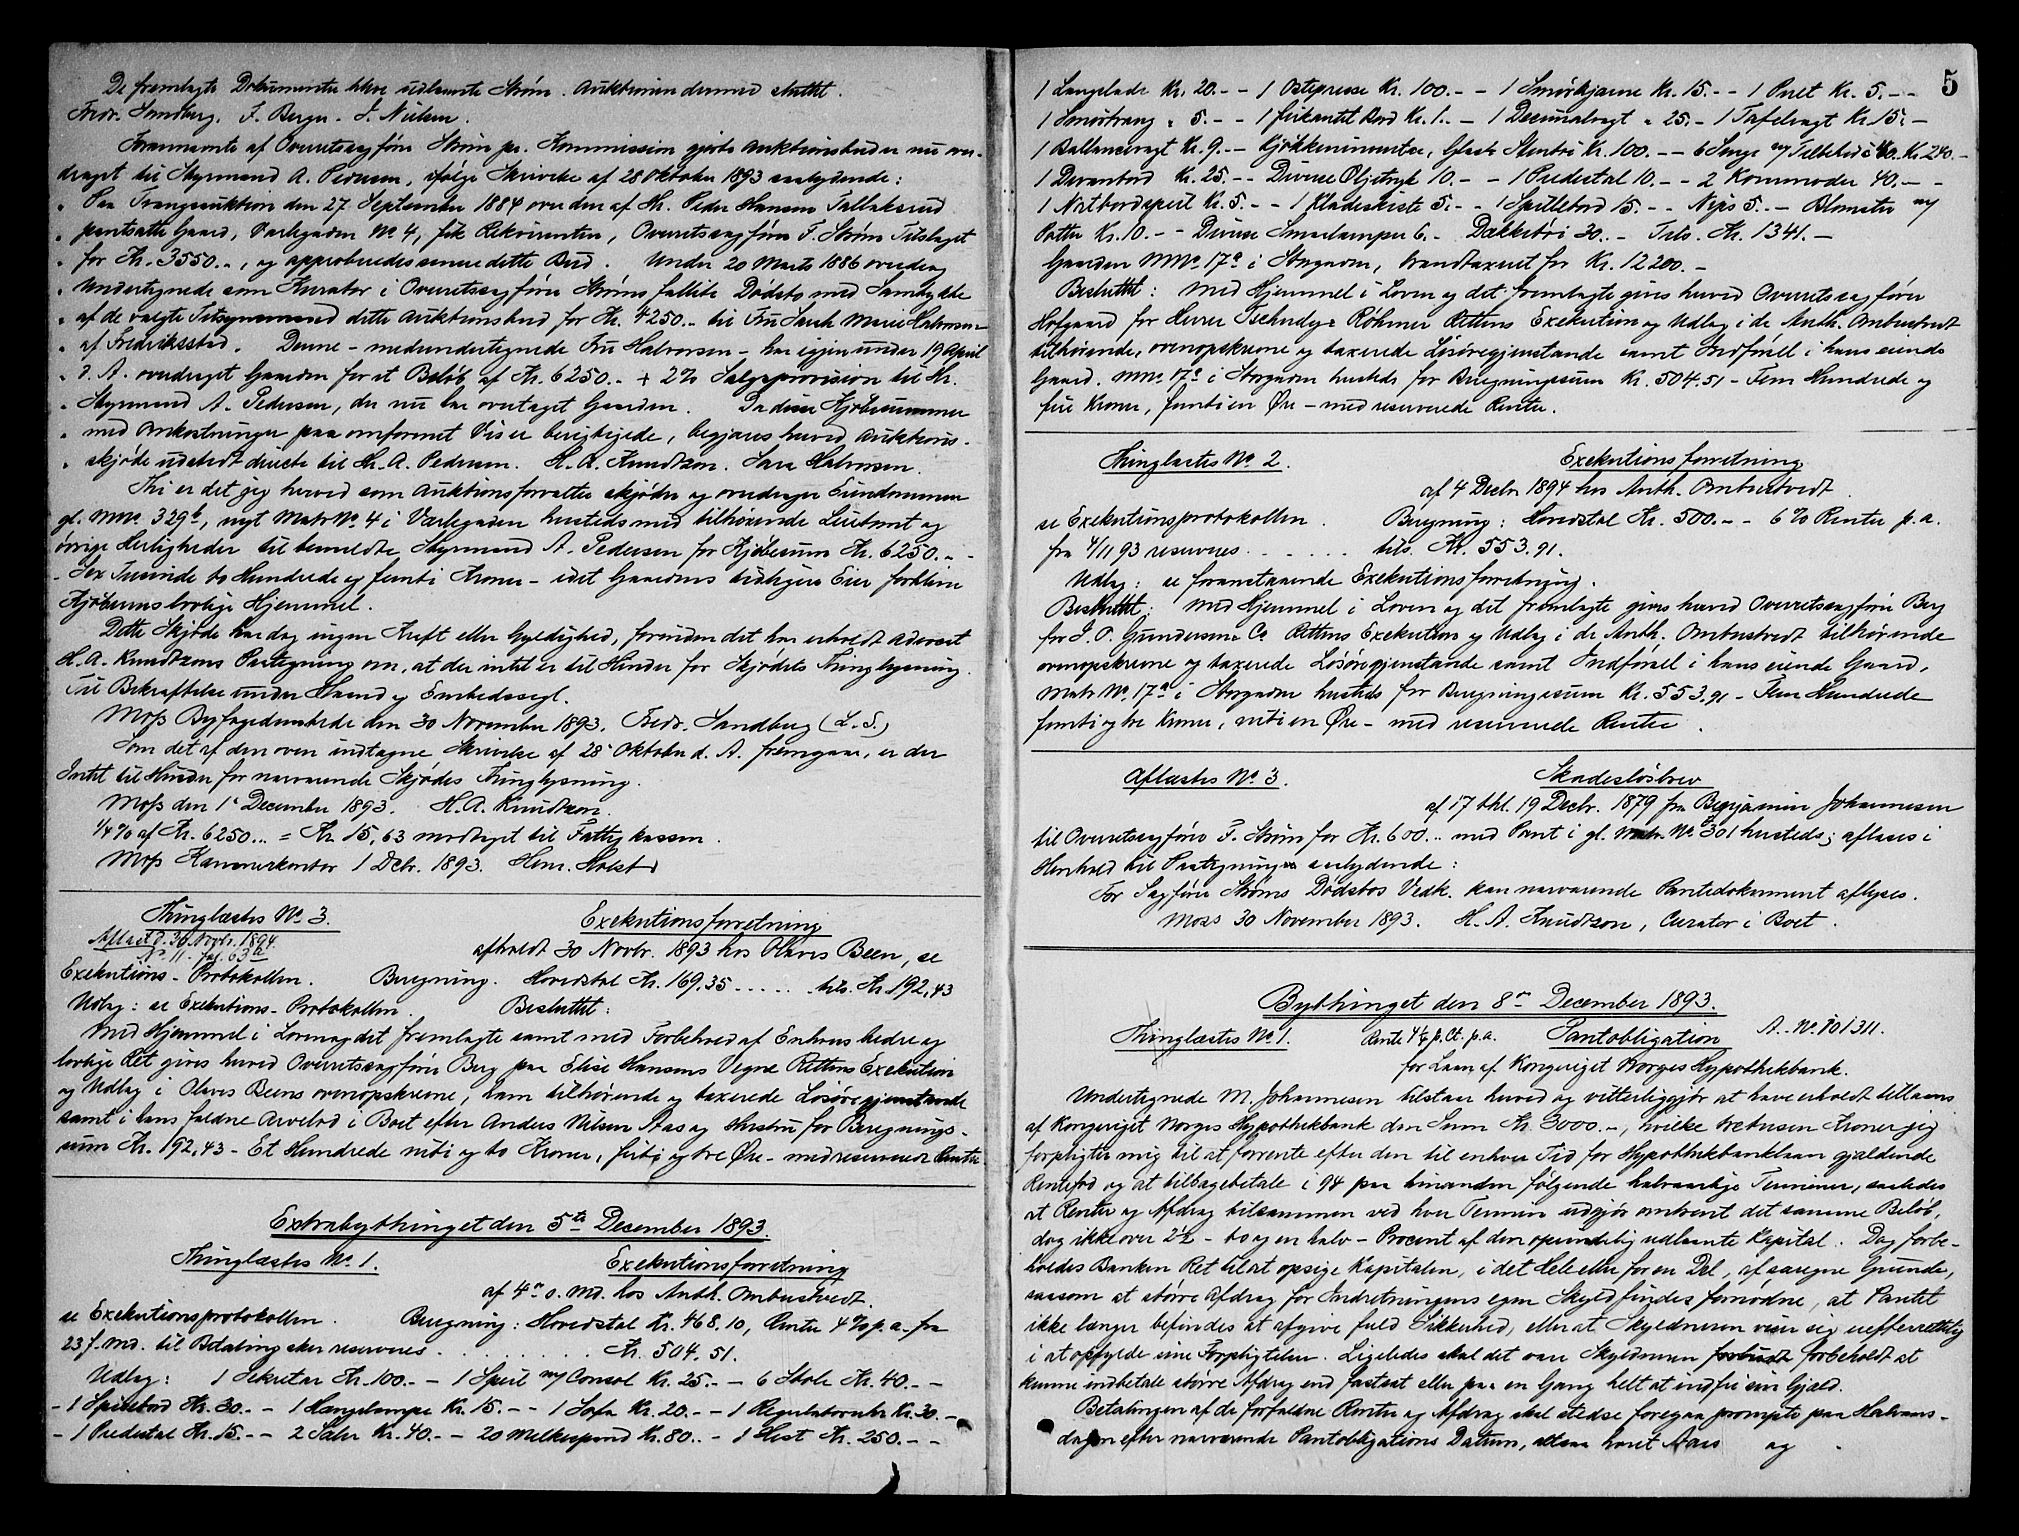 De fremlagte Dokumenter bleve udleverte Strøm. Auktionen dermed sluttet.
Fredr. Sandberg. F. Berger. J. Nielsen.
Forannævnte af Overretssagfører Strøm pr. Kommission gjorte Auktionsbud er nu over-
draget til Styrmand A. Pedersen, ifølge Skrivelse af 28 Oktober 1893 saalydende:
" Paa Tvangsauktion den 27 September 1884 over den af Hr. Peder Hansen Tallaksrud
" pantsatte Gaard, Varlegaden No 4, fik Rekvirenten, Overretssagfører F. Strøm Tilslaget
" for Kr. 3550.-, og approberedes senere dette Bud. Under 20 Marts 1886 overdrog
" Undertegnede som Kurator i Overretssagfører Strøms fallite Dødsbo med Samtykke
" af de valgte Tilsynsmænd dette Auktionsbud for Kr. 4250.- til Fru Sarah Marie Halvorsen
" af Fredriksstad. Denne - medundertegnede Fru Halvorsen - har igjen under 19 April
" d. A. overdraget Gaarden for et Beløb af Kr. 6250.- + 2% Salgsprovision til Hr.
" Styrmand A. Pedersen, der nu har overtaget Gaarden. Da disse Kjøbesummer
" med Omkostninger paa omforenet Vis er berigtigede, begjæres herved Auktions-
" skjøde udstedt directe til Hr. A. Pedersen. H. A. Knudtzon. Sara Halvorsen.
Thi er det jeg herved som Auktionsforvalter skjøder og overdrager Eiendommen
gl. MNo. 329b, nyt Matr No. 4 i Varlegaden hersteds med tilhørende Leietomt og
øvrige Herligheder til bemeldte Styrmand A. Pedersen for Kjøbesum Kr. 6250.- -
- Sex Tusinde to Hundrede og femti Kroner - idet Gaardens tidligere Eier forbliver
Kjøberens lovlige Hjemmel.
Dette Skjøde har dog ingen Kraft eller Gyldighed, forinden det har erholdt Advocat
H. A. Knudtzons Paategning om, at der intet er til Hinder for Skjødets Thinglysning.
Til Bekræftelse under Haand og Embedssegl.
Moss Byfogedembede den 30 November 1893. Fredr. Sandberg (L. S.)
Som det af den oven indtagne Skrivelse af 28' Oktober d. A. fremgaar, er der
Intet til Hinder for nærværende Skjødes Thinglysning.
Moss den 1' December 1893. H. A. Knudtzon.
1/4 % af Kr. 6250.. = Kr. 15,63 modtaget til Fattigkassen.
Moss Kæmnerkontor 1 Decbr. 1893. Henr. Holst
Thinglæstes No. 3. Exekutionsforretning
Aflæst d. 30 Novbr. 1894. No 11. fol. 63a
afholdt 30 Novbr. 1893 hos Olaves Been, se
Exekutions-Protokollen. Beregning. Hovedstol Kr. 169.35 ..... tils. Kr. 192,43
Udlæg: se Exekutions-Protokollen. Besluttet:
Med Hjemmel i Loven og det fremlagte samt med Forbehold af Enhvers bedre og
lovlige Ret gives herved Overretssagfører Berg paa Elise Hansens Vegne Rettens Exekution
og Udlæg i Olaves Beens ovenopskrevne, ham tilhørende og taxerede Løsøregjenstande
samt i hans faldne Arvelod i Boet efter Anders Nilsen Aas og Hustru for Beregnings-
sum Kr. 192,43 - Et Hundrede niti og to Kroner, førti og tre Øre - med reserverede Renter
Extrabythinget den 5te December 1893.
Thinglæstes No. 1. Exekutionsforretning
af 4de d. Md. hos Anth. Ombustvedt.
se Exekutionsprotokollen. Beregning: Hovedstol Kr. 468.10, Renter 4% p. a. fra
23 f. Md. til Betaling sker reserveres. . . . . . . . Kr. 504.51.
Udlæg: 1 Sekretær Kr. 100.- - 1 Speil m/ Consol Kr. 25.- - 6 Stole Kr. 40.- -
- 1 Spillebord Kr. 30.- - 1 Hængelampe Kr. 15.- - 1 Sofa Kr. 20.- - 1 Regulatoruhr Kr. 30.-
- 1 Piedestal Kr. 15.- - 2 Saler Kr. 40.- - 20 Melkespand Kr. 80.- - 1 Hest Kr. 250.- -
5
1 Langslæde Kr. 20.- - 1 Ostepresse Kr. 100.- - 1 Smørkjærne Kr. 15.- - 1 Puret Kr. 5.- -
1 Smørtraug " 5.- - 1 firkantet Bord Kr. 1.- - 1 Decimalvægt " 25.- 1 Tafelvægt Kr. 15.-
1 Ballancevægt Kr. 9.- - Kjøkkeninventar, Glas & Stentøi Kr. 100.- - 6 Senge m/ Tilbehør à 40.- Kr. 240.-
1 Divanbord Kr. 25.- - Diverse Oljetryk 10.- - 1 Piedestal 10.- - 2 Kommoder 40.- -
1 Natbordspeil Kr. 5.- - 1 Klædeskiste 5.- - 1 Spillebord 15.- - Nips 5.- - Blomster m/
Potter Kr. 10.- - Diverse Smaalamper 6.- Dækketøi 30.- Tils. Kr. 1341.-
Gaarden MNo. 17a i Storgaden, brandtaxeret for Kr. 12200.-
Besluttet: Med Hjemmel i Loven og det fremlagte gives herved Overretssagfører
Hofgaard for Herrer Tschudy & Røhmer Rettens Exekution og Udlæg i de Anth. Ombustvedt
tilhørende, ovenopskrevne og taxerede Løsøregjenstande samt Indførsel i hans eiende
Gaard, MNo. 17a i Storgaden hersteds for Beregningssum Kr. 504.51 - Fem Hundrede og
fire Kroner, femti en Øre - med reserverede Renter.
Thinglæstes No. 2. Exekutionsforretning
af 4 Decbr. 1894 hos Anth. Ombustvedt.
se Exekutionsprotokollen. Beregning: Hovedstol Kr. 500.- - 6% Renter p. a.
fra 4/11 93 reserveres. . . . . . tils. Kr. 553.91.
Udlæg: se foranstaaende Exekutionsforretning.
Besluttet: Med Hjemmel i Loven og det fremlagte gives herved Overretssagfører Berg
for J. P. Gundersen & Co Rettens Exekution og Udlæg i de Anth. Ombustvedt tilhørende
ovenopskrevne og taxerede Løsøregjenstande samt Indførsel i hans eiende Gaard,
Matr No. 17a i Storgaden hersteds for Beregningssum Kr. 553.91 - Fem Hundrede
femti og tre Kroner, niti en Øre - med reserverede Renter.
Aflæstes No. 3. Skadesløsbrev
af 17 thl. 19 Decbr. 1879 fra Benjamin Johannesen
til Overretssagfører F. Strøm for Kr. 600.. med Pant i gl. Matr. No. 301 hersteds; aflæses i
Henhold til Paategning saalydende:
For Sagfører Strøms Dødsbos Vedk. kan nærværende Pantedokument aflyses.
Moss 30 November 1893. H. A. Knudtzon, Curator i Boet.
Bythinget den 8de December 1893.
Thinglæstes No. 1. Rente 4 1/4 p. Ct. p. a. Pantobligation A. No. 101311.
for Laan af Kongeriget Norges Hypothekbank.
Undertegnede M. Johannesen tilstaar herved og vitterliggjør at have erholdt tillaans
af Kongeriget Norges Hypothekbank den Sum Kr. 3000.-, hvilke tretusen Kroner jeg
forpligter mig til at forrente efter den til enhver Tid for Hypothekbanklaan gjældende
Rentefod og at tilbagebetale i 94 paa hinanden følgende halvaarlige Terminer, saaledes
at Renter og Afdrag tilsammen ved hver Termin udgjør omtrent det samme Beløb,
dog ikke over 2 1/2 - to og en halv - Procent af den oprindelig udlaante Kapital. Dog forbe-
holdes Banken Ret til at opsige Kapitalen, i det Hele eller for en Del, af særegne Grunde,
saasom at større Afdrag for Indretningens egen Skyld findes fornødne, at Pantet
ikke længer befindes at afgive fuld Sikkerhed, eller at Skyldneren viser sig uefterrettelig
i at opfylde sine Forpligtelser. Ligeledes skal det være Skyldneren forbudt forbeholdt at
kunne indbetale større Afdrag end fastsat eller paa en Gang helt at indfri sin Gjæld.
Betalingen af de forfaldne Renter og Afdrag skal stedse foregaa prompte paa Halvaars-
dagen efter nærværende Pantobligations Datum, altsaa hvert Aars og .